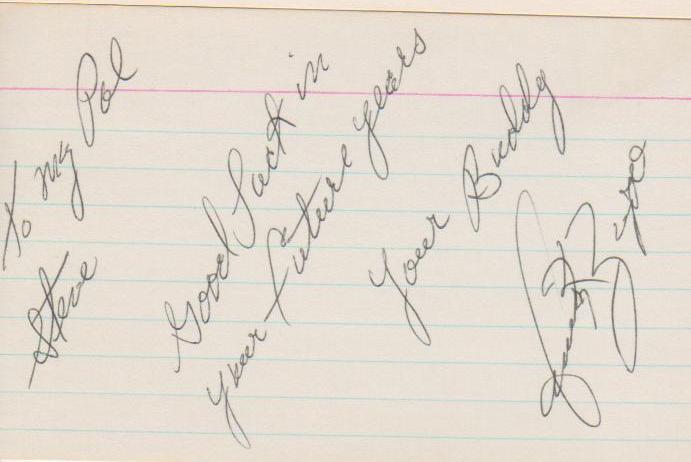 To my Pal
Steve
Good Luck in
your Future years
Your Buddy